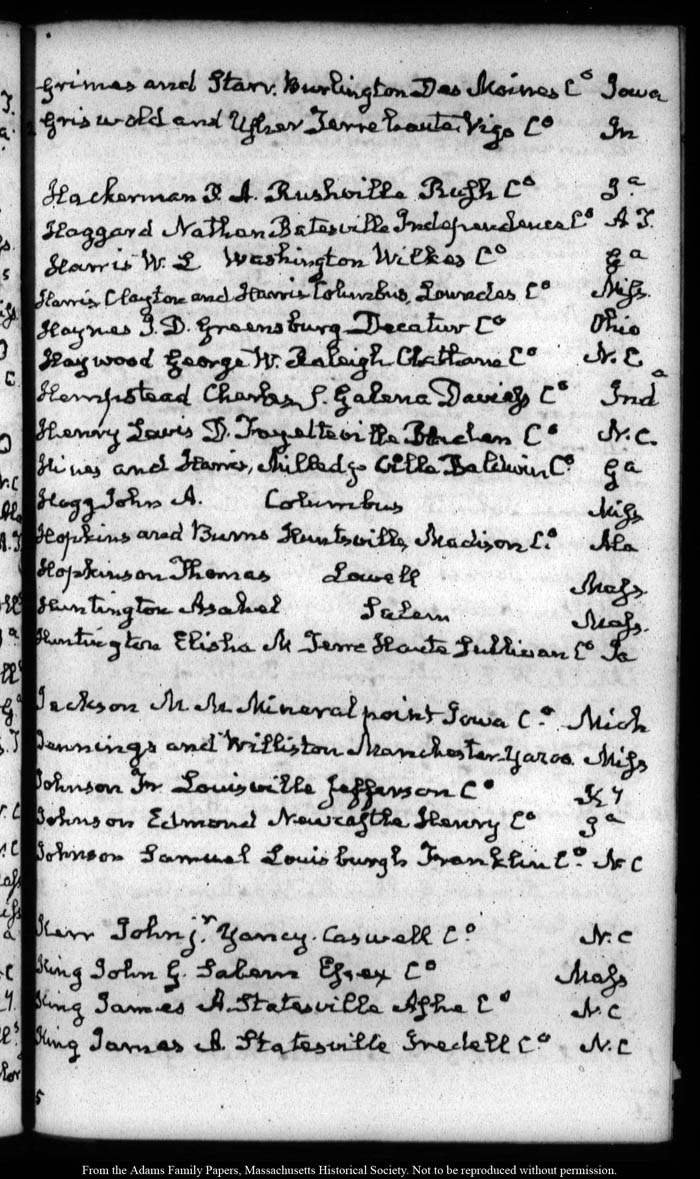 Grimes and Starr. Burlington Des Moines Co Iowa
Griswold and Usher Terrehaute Vigo Co In
Hackerman A. Rushville Rush Co Ia
Haggard Nathan Batesville Independence Co A T.
Harris W. L Washington Wilkes Co Ga
Harris Clayton and Harris Columbus, Lowndes Co Miss.
Haynes J. D. Greensburg Decatur Co Ohio
Haywood George W. Raleigh Chatham Co N. C
Hempstead Charles S. Galena Daviess Co Inda
Henry Lewis D. Fayetteville Co N. C.
Hines and Harris, Milledgeville Baldwin Co Ga
Hogg John A. Columbus Miss
Hopkins and Burns Huntsville, Madison Co Ala
Hopkinson Thomas Lowell Mass
Huntington Asahel Salem Mass.
Huntington Elisha M Terre Haute Sullivan Co Ia
Jackson M. M. Mineral point Iowa Co. Mich
Jennings and Williston Manchester Yazoo Miss
Johnson Fr Louisville Jefferson Co Ky
Johnson Edmond Newcastle Henry Co Ia
Johnson Samuel Louisburgh Franklin Co. N C
Kerr John jr. Yancy. Caswell Co N. C
King John G. Salem Essex Co Mass
King James A. Statesville Ashe Co N. C
King James A. Statesville Iredell Co N. C
From the Adams Family Papers, Massachusetts Historical Society. Not to be reproduced without permission.